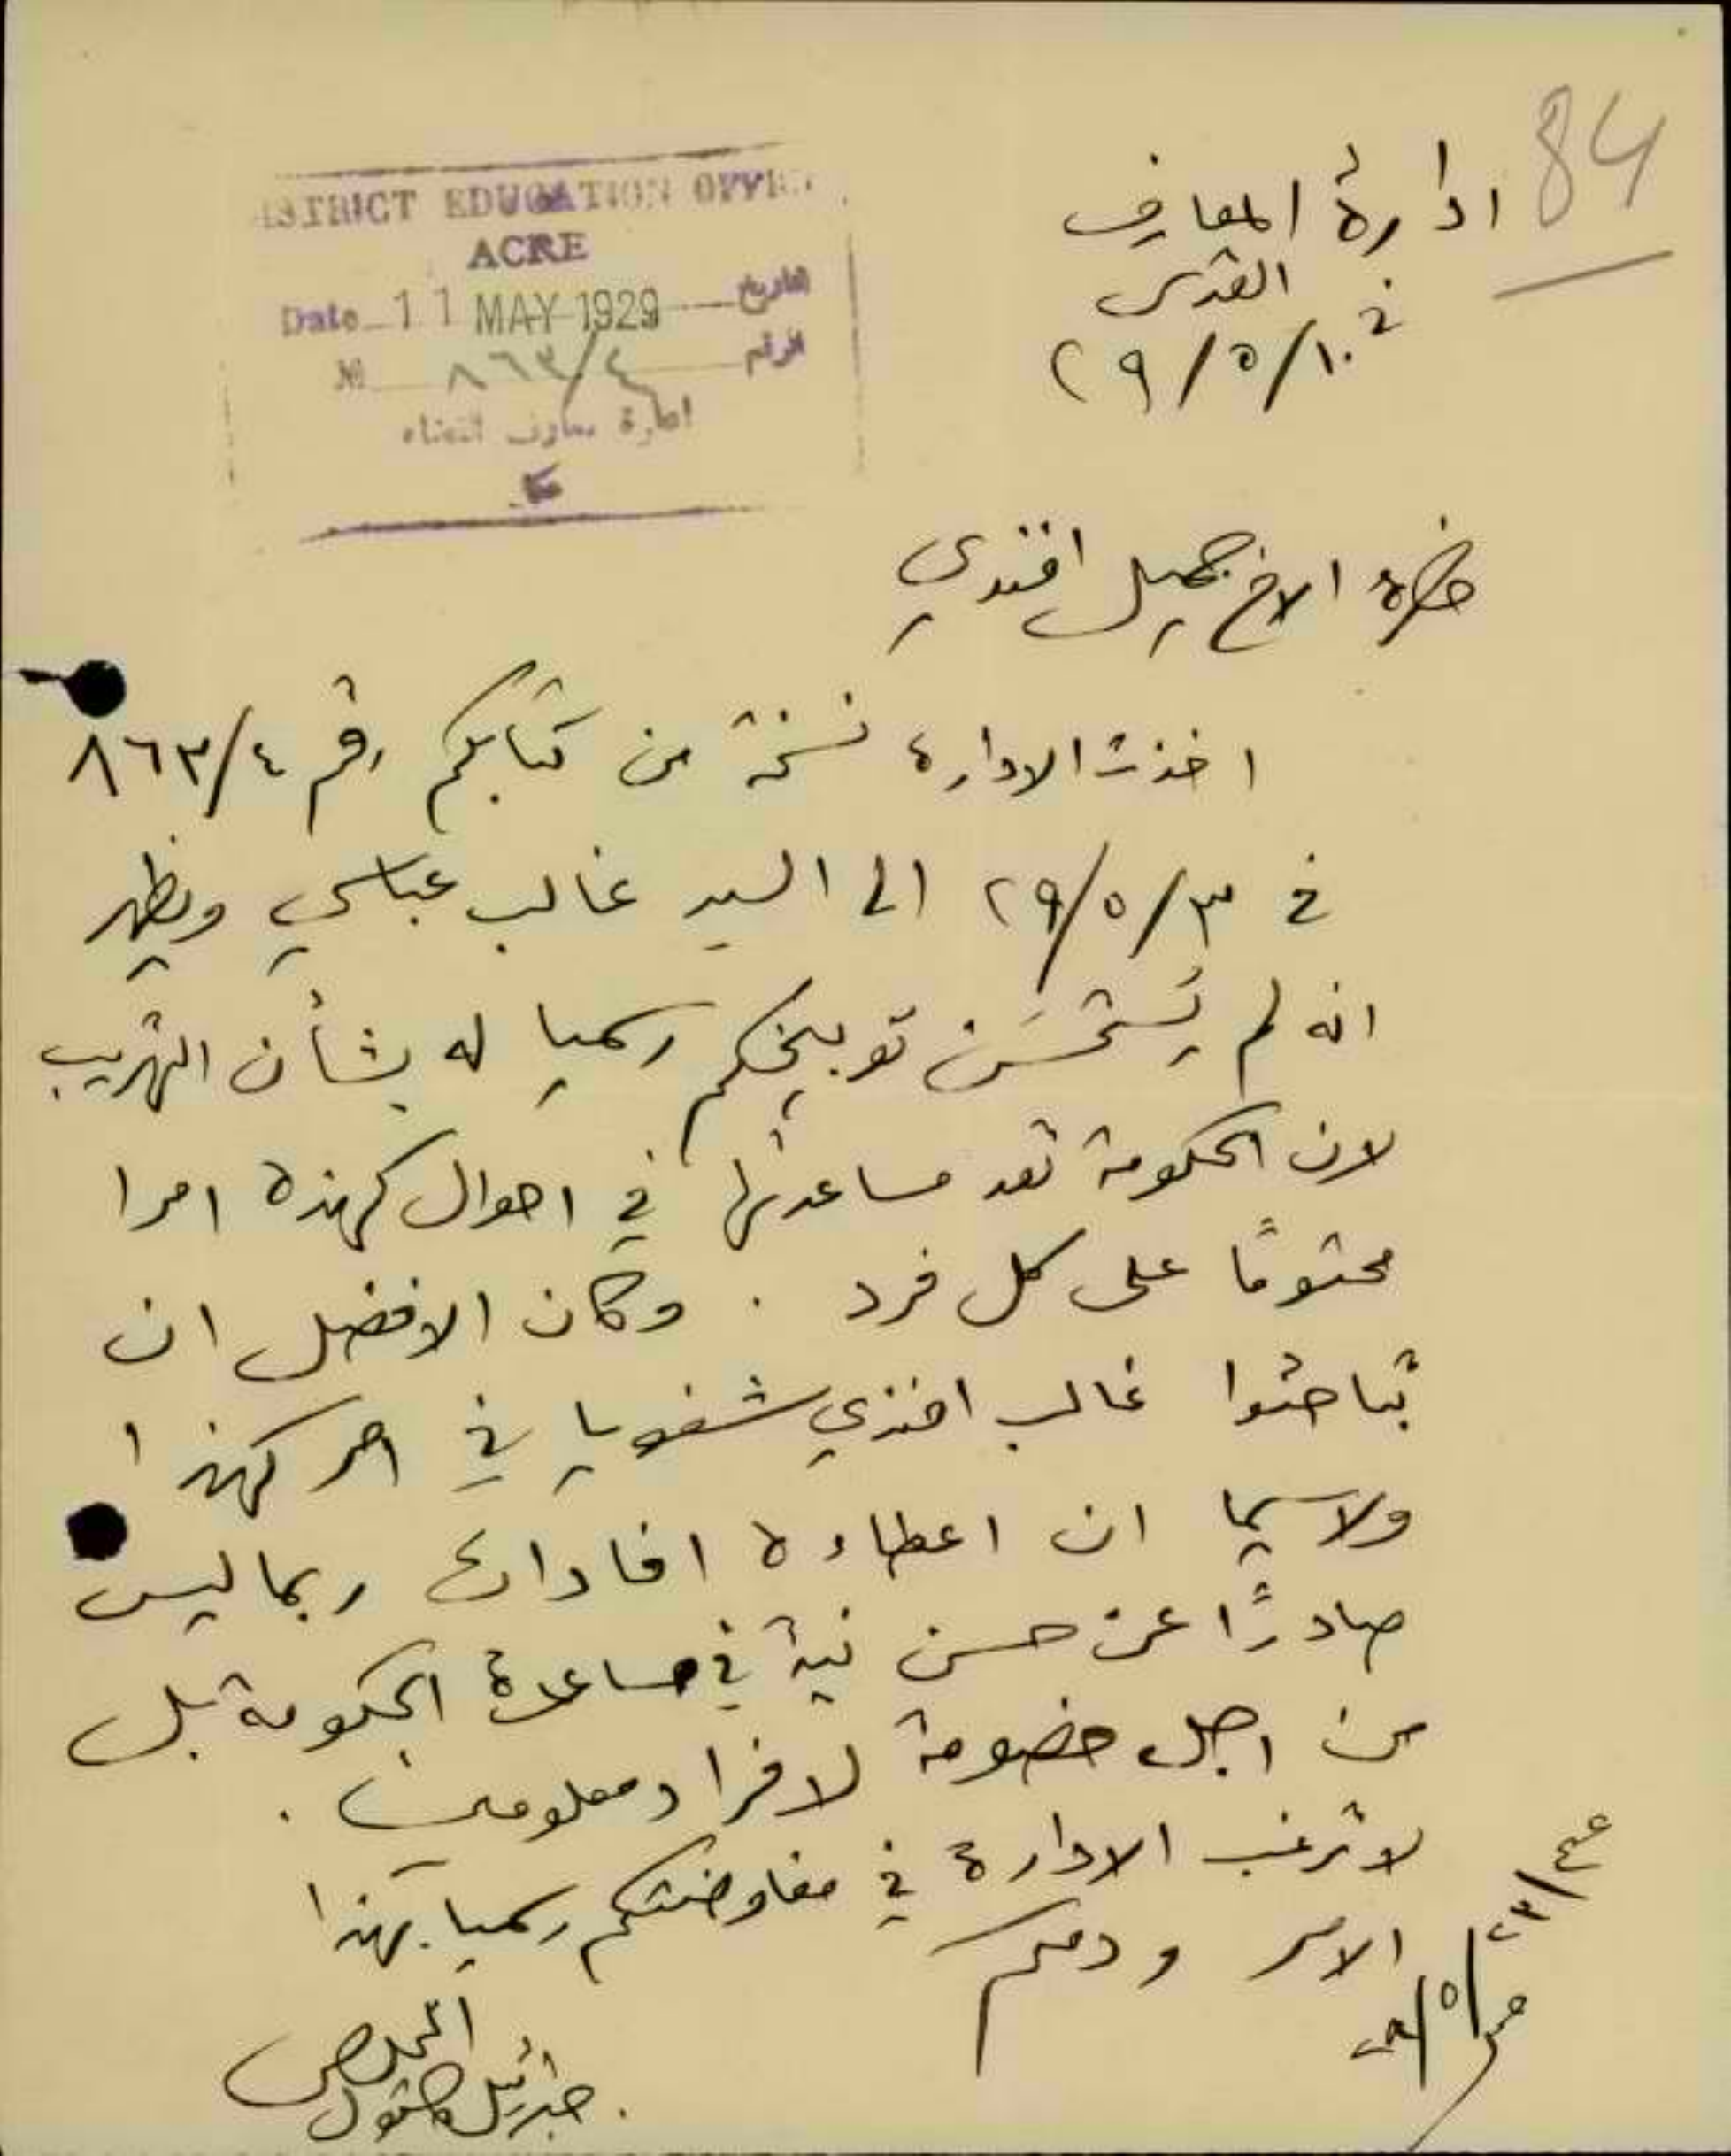 84
ادارة المعارف
القدس
في ٢٩/٥/١٠
DISTRICT EDUCATION OFFICE
ACRE
Date 11 MAY 1929 التاريخ
№ ٨٦٣/٤ الرقم
ادارة معارف القضاء
عكا
حضرة الاخ جميل افندي
اخذت الادارة نسخة من كتابكم رقم ٨٦٣/٤
في ٢٩/٥/٣ الى السيد غالب عباسي ويظهر
انه لم يُستحسَن توبيخكم رسميا له بشأن التهريب
لان الحكومة تعد مساعدتها في احوال كهذه امرا
محتومًا على كل فرد . وكان الافضل ان
تباحثوا غالب افندي شفويا في امر كهذا
ولاسيما ان اعطاءه افادات ربما ليس
صادرًا عن حسن نية في مساعدة الحكومة بل
من اجل خصومة لافراد معلومين .
لا ترغب الادارة في مفاوضتكم رسميا بهذا
الامر ودمتم
المخلص
جبرائيل كاتول